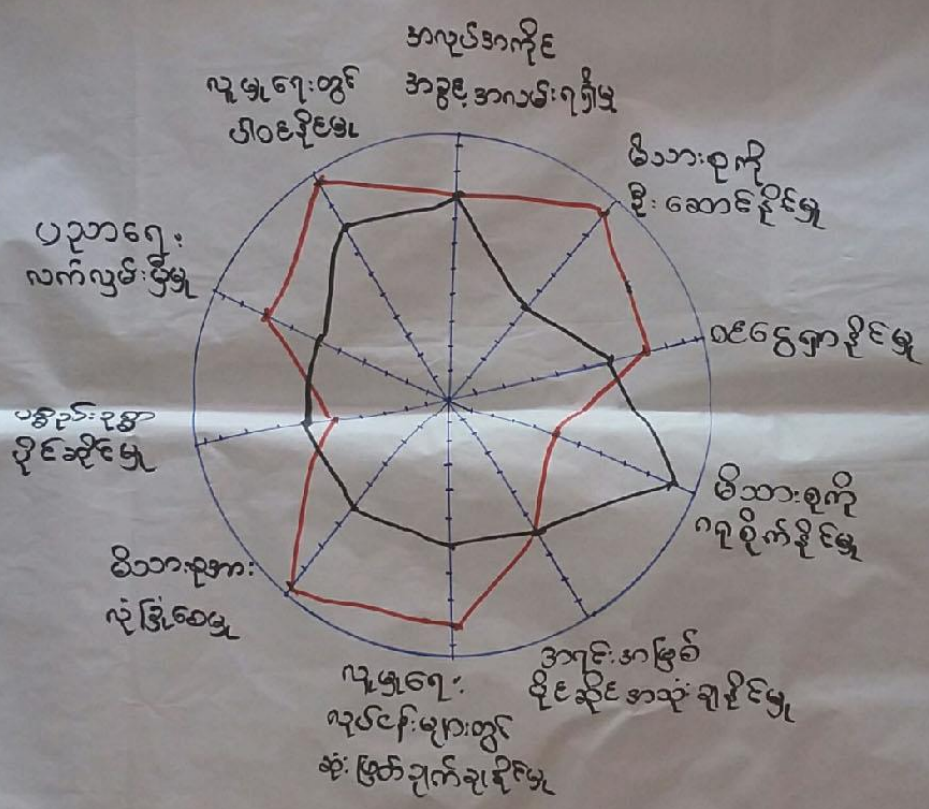 အလုပ်အကိုင်
အခွင့်အလမ်းရရှိမှု
မိသားစုကို
ဦးဆောင်နိုင်မှု
ဝင်ငွေရှာနိုင်မှု
မိသားစုကို
ဂရုစိုက်နိုင်မှု
အရင်းအမြစ်
ပိုင်ဆိုင်အသုံးချနိုင်မှု
လူမှုရေး
လုပ်ငန်းများတွင်
ဆုံးဖြတ်ချက်ချနိုင်မှု
မိသားစုအား
လုံခြုံစေမှု
ပစ္စည်းဥစ္စာ
ပိုင်ဆိုင်မှု
ပညာရေး
လက်လှမ်းမှီမှု
လူမှုရေးတွင်
ပါဝင်နိုင်မှု